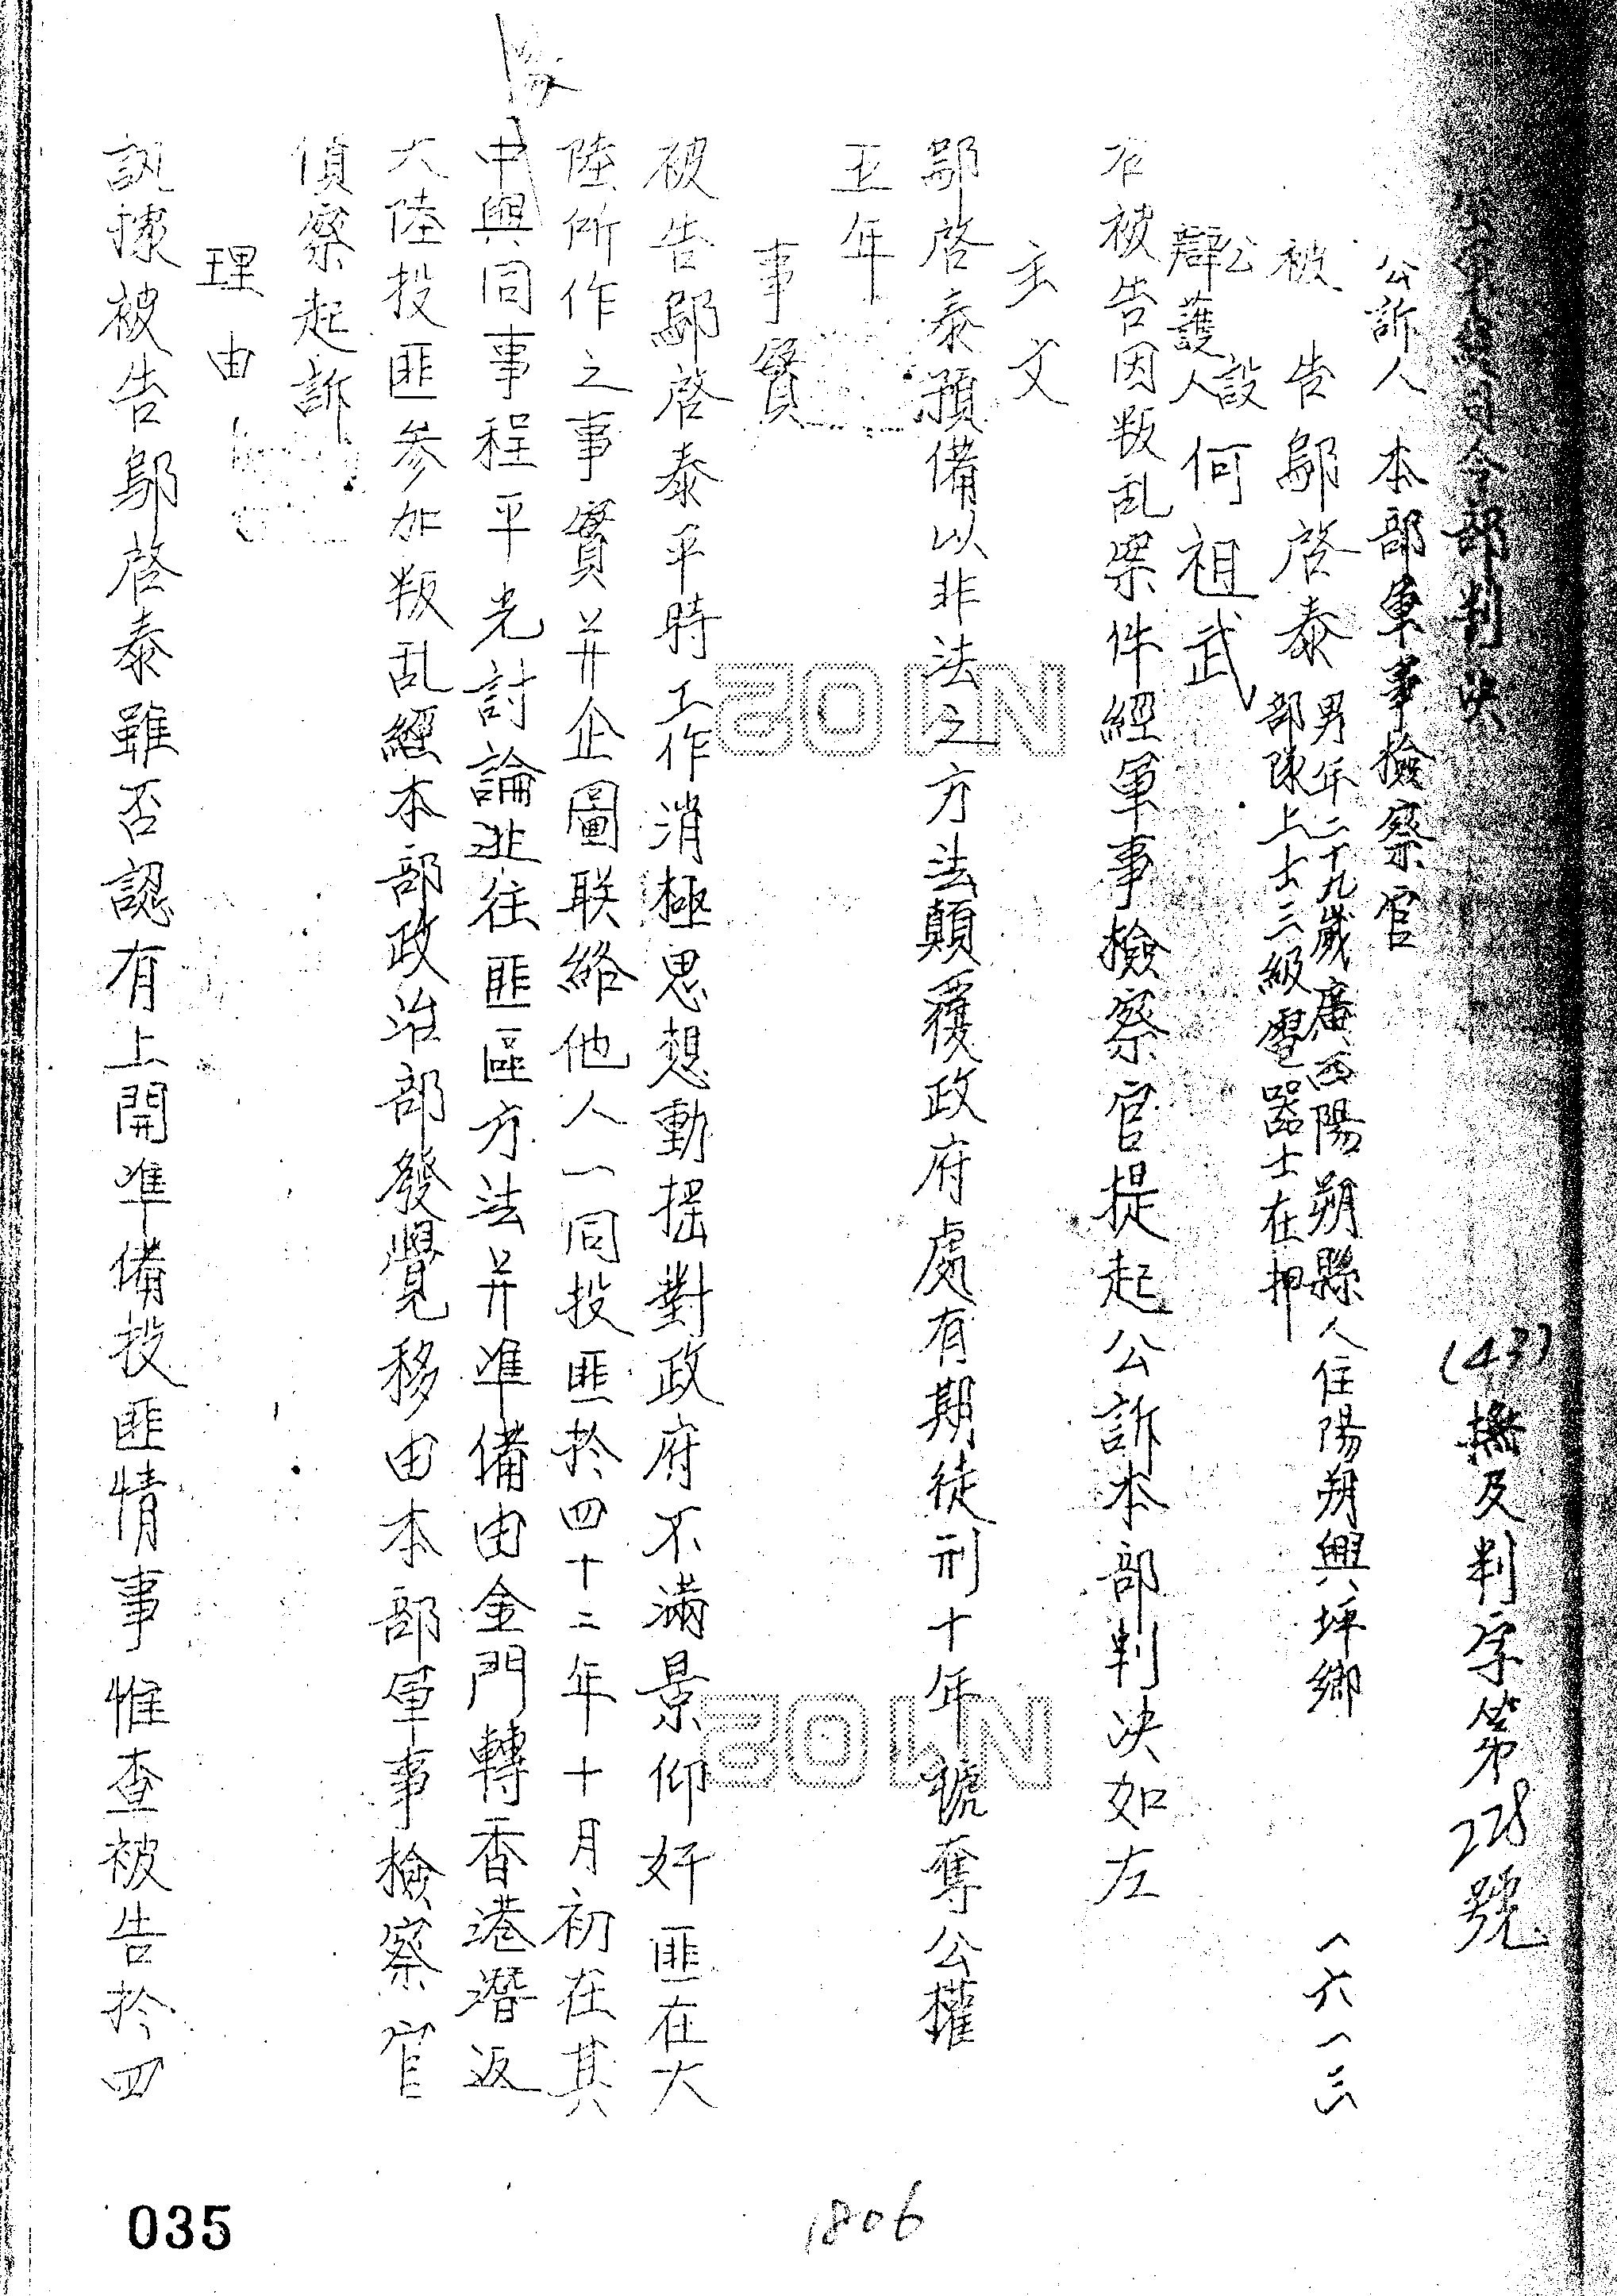 空軍總司令部判決 (43)撫及判字第228號
公訴人 本部軍事檢察官
被告 鄔啓泰 男年二十九歲廣西陽朔縣人住陽朔興坪鄉 (六) (三)
部隊上士三級電器士在押
公設
辯護人 何祖武
右被告因叛乱案件經軍事檢察官提起公訴本部判决如左
主文
鄔啓泰預備以非法之方法顛覆政府處有期徒刑十年褫奪公權
五年
事實
被告鄔啓泰平時工作消極思想動摇對政府不滿景仰奸匪在大
陸所作之事實并企圖联絡他人一同投匪於四十二年十月初在其
中與同事程平光討論逃往匪區方法并準備由金門轉香港潛返
大陸投匪参加叛乱經本部政治部發覺移由本部軍事檢察官
偵察起訴
理由
訊據被告鄔啓泰雖否認有上開準備投匪情事惟查被告於四
1806
035